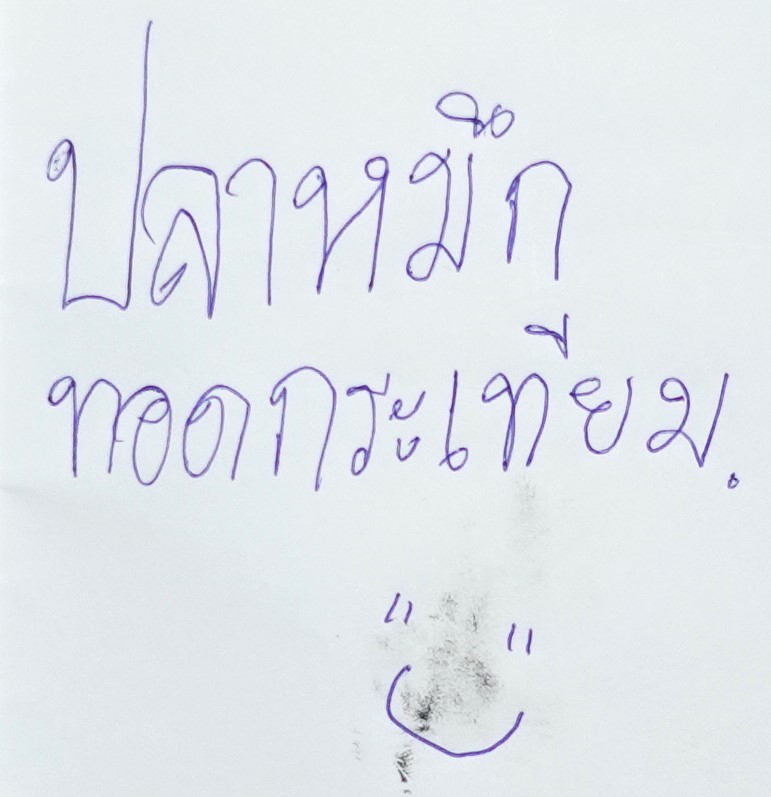 ปลาหมึก
ทอดกระเทียม.